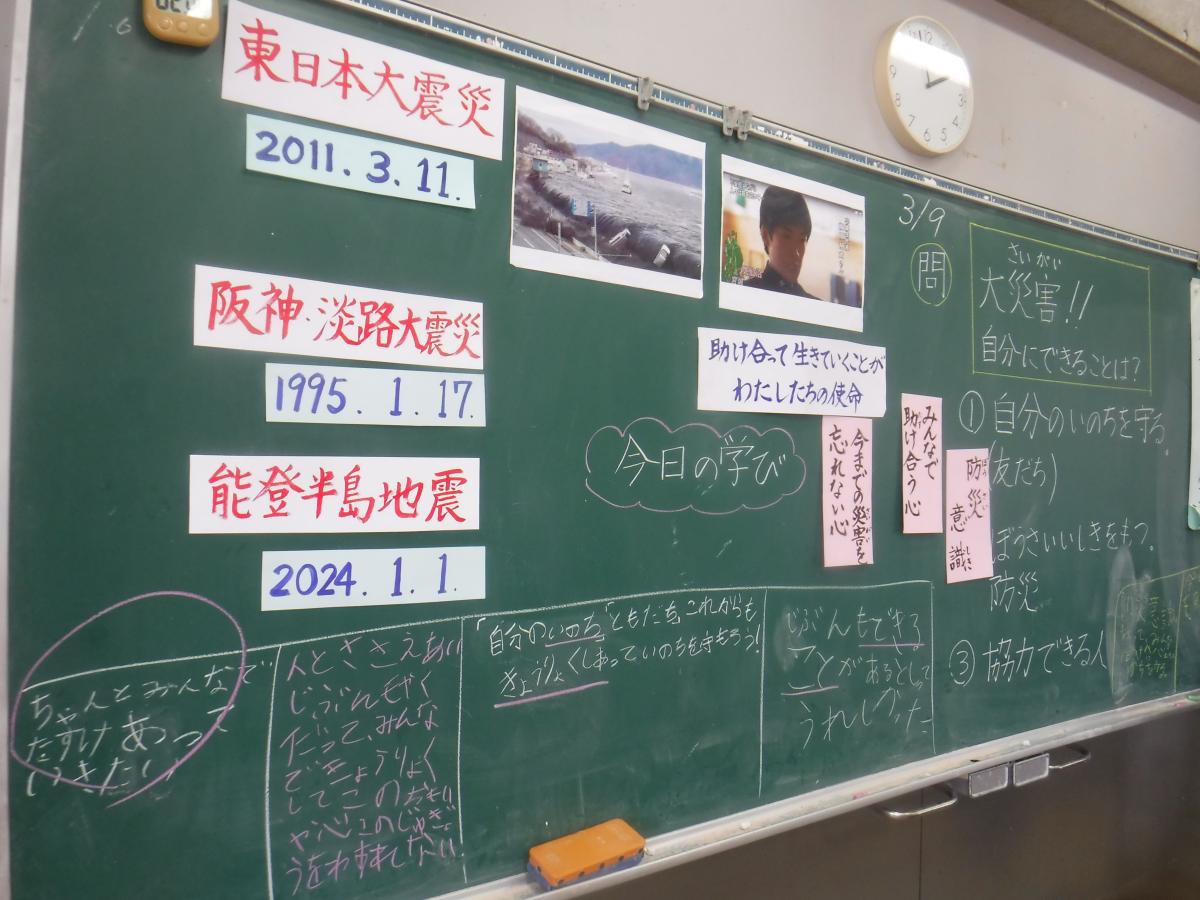 東日本大震災
2011.3.11.
阪神・淡路大震災
1995.1.17.
能登半島地震
2024.1.1.
3/9
問
さいがい
大災害!!
自分にできることは?
助け合って生きていくことが
わたしたちの使命
今日の学び
みんなで
助け合う心
今までの災害を
忘れない心
防災
意識
① 自分のいのちを守る
(友だち)
ぼうさいいしきをもつ。
防災
③ 協力できる人
ちゃんとみんなで
たすけあって
いきたい
人とささえあい
じぶんもやく
だって、みんな
できょうりょく
してこのおもい
や心このじゅぎょ
うをわすれしない!
「自分のいのち」ともだちこれからも
きょうりょくしあっていのちを守もろう!
じぶんもできる
ことがあるとしって
うれしかった
12
11
1
9
3
8
7
6
5
4